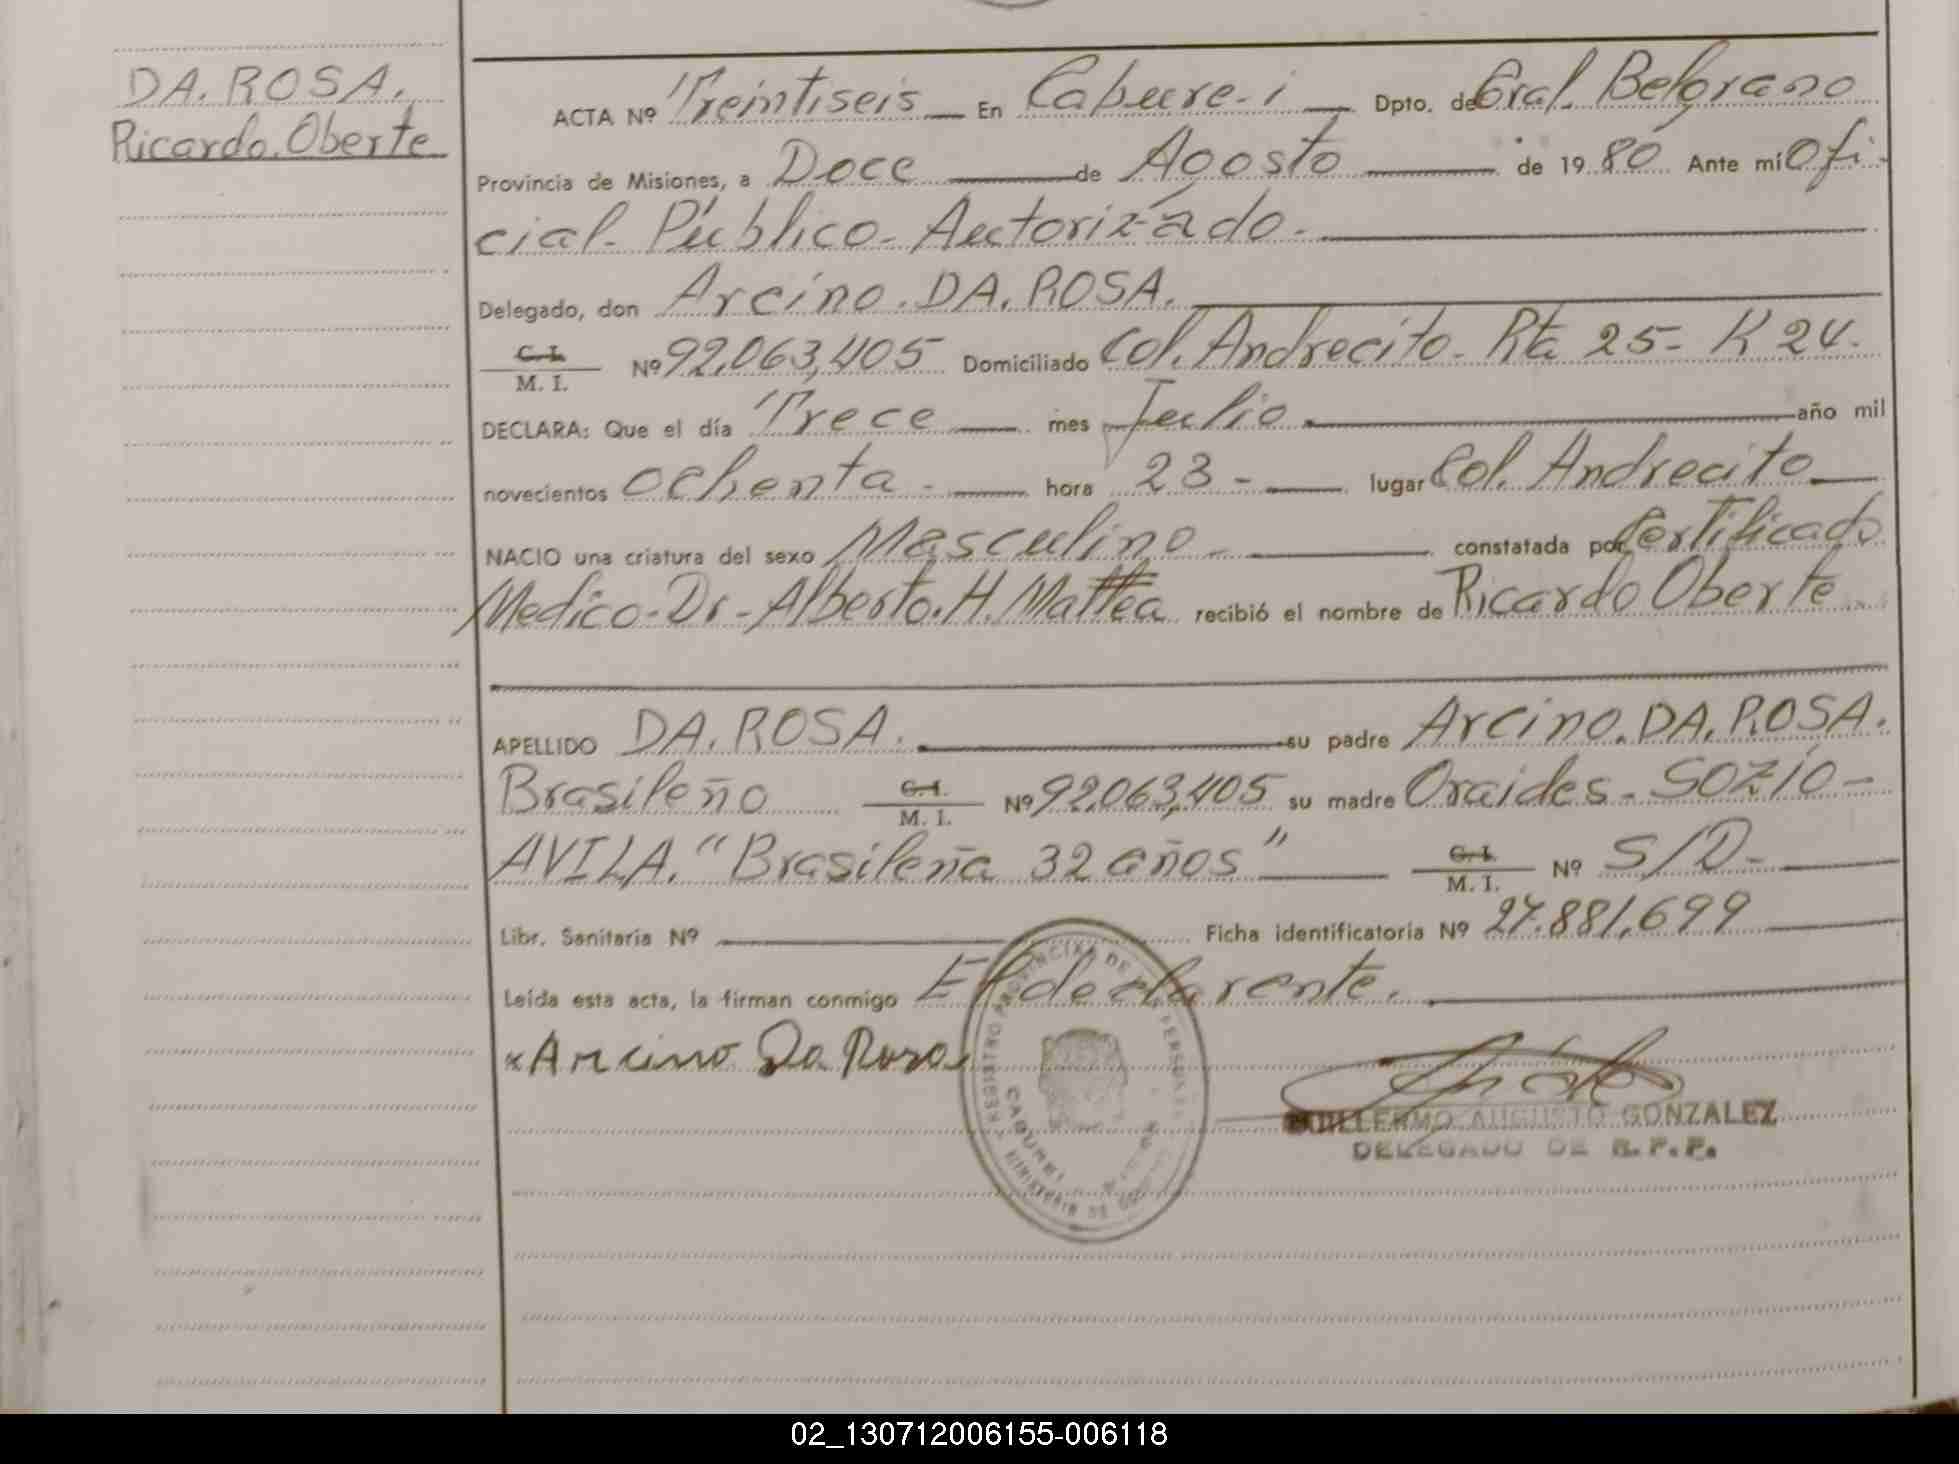 DA. ROSA.
Ricardo. Oberte
ACTA Nº Treintiseis En Cabure-i Dpto. de Gral. Belgrano
Provincia de Misiones, a Doce de Agosto de 1980 Ante mí Ofi-
cial- Público- Autorizado.
Delegado, don Arcino. DA. ROSA.
C. I. / M. I. Nº 92,063,405 Domiciliado Col. Andrecito- Rta 25- K 24.
DECLARA: Que el día Trece mes Julio año mil
novecientos ochenta- hora 23- lugar Col. Andrecito
NACIO una criatura del sexo Masculino- constatada por Certificado
Medico- Dr- Alberto. H. Mattea recibió el nombre de Ricardo Oberte
APELLIDO DA. ROSA. su padre Arcino. DA. ROSA.
Brasileño C. I. / M. I. Nº 92,063,405 su madre Oraides- SOZIO-
AVILA. "Brasileña 32 años" C. I. / M. I. Nº S/D-
Libr. Sanitaria Nº Ficha identificatoria Nº 27.881,699
Leída esta acta, la firman conmigo El declarente.
x Arcino Da Rosa
REGISTRO PROVINCIAL DE LAS PERSONAS
CABUREI
MINISTERIO DE
GUILLERMO AUGUSTO GONZALEZ
DELEGADO DE R. P. P.
02_130712006155-006118